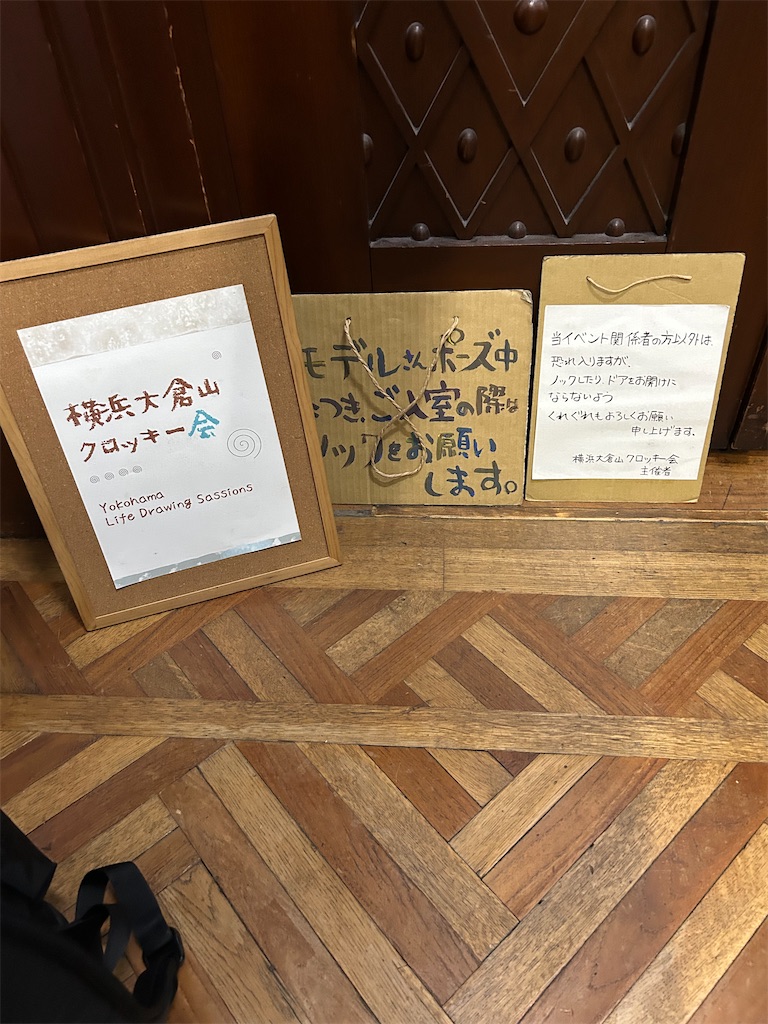 横浜大倉山
クロッキー会
Yokohama
Life Drawing Sassions
モデルさんポーズ中
につき、ご入室の際は
ノックをお願い
します。
当イベント関係者の方以外は、
恐れ入りますが、
ノックしたり、ドアをお開けに
ならないよう
くれぐれもよろしくお願い
申し上げます。
横浜大倉山クロッキー会
主催者